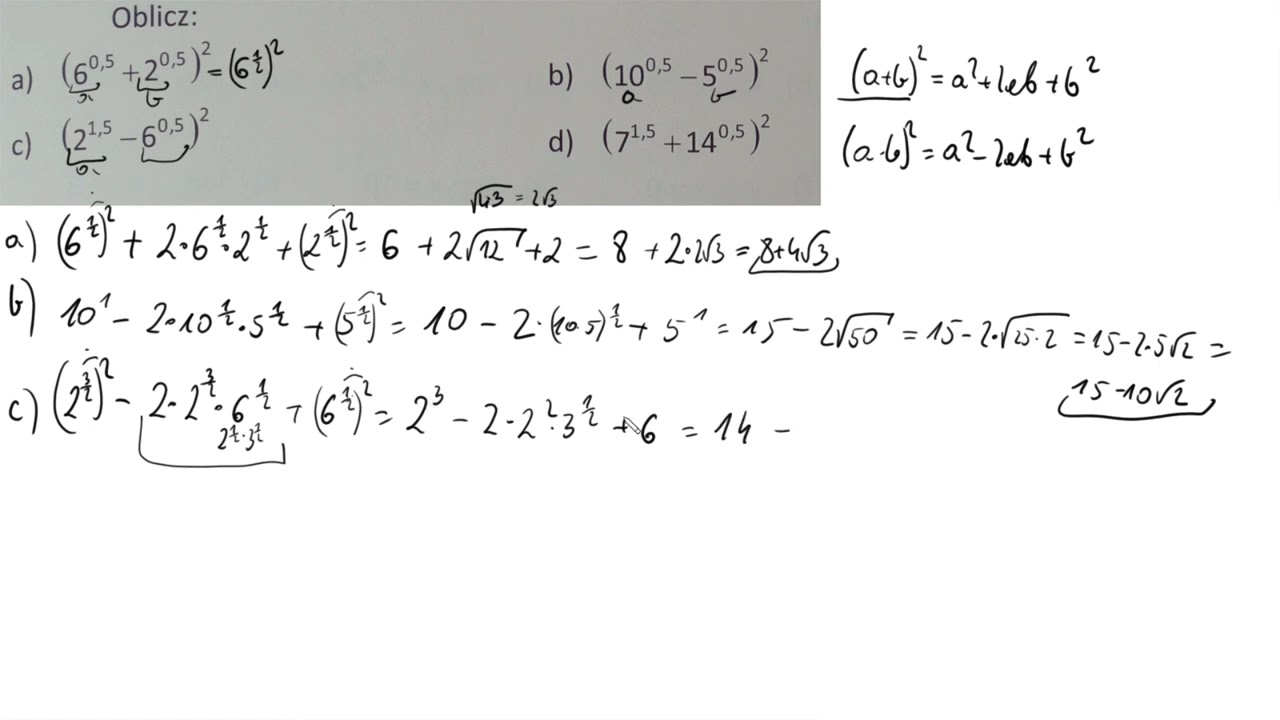 Oblicz:
a) (6^0,5 + 2^0,5)^2 = (6^½)^2
a b
b) (10^0,5 − 5^0,5)^2
a b
c) (2^1,5 − 6^0,5)^2
a
d) (7^1,5 + 14^0,5)^2
(a+b)^2 = a^2 + 2ab + b^2
(a-b)^2 = a^2 - 2ab + b^2
√4·3 = 2√3
a) (6^½)^2 + 2·6^½·2^½ + (2^½)^2 = 6 + 2√12 + 2 = 8 + 2·2√3 = 8+4√3
b) 10^1 − 2·10^½·5^½ + (5^½)^2 = 10 − 2·(10·5)^½ + 5^1 = 15 − 2√50 = 15 − 2·√25·2 = 15 − 2·5√2 =
15 − 10√2
c) (2^3/2)^2 − 2·2^3/2·6^½ + (6^½)^2 = 2^3 − 2·2^2·3^½ + 6 = 14 −
2^½·3^½